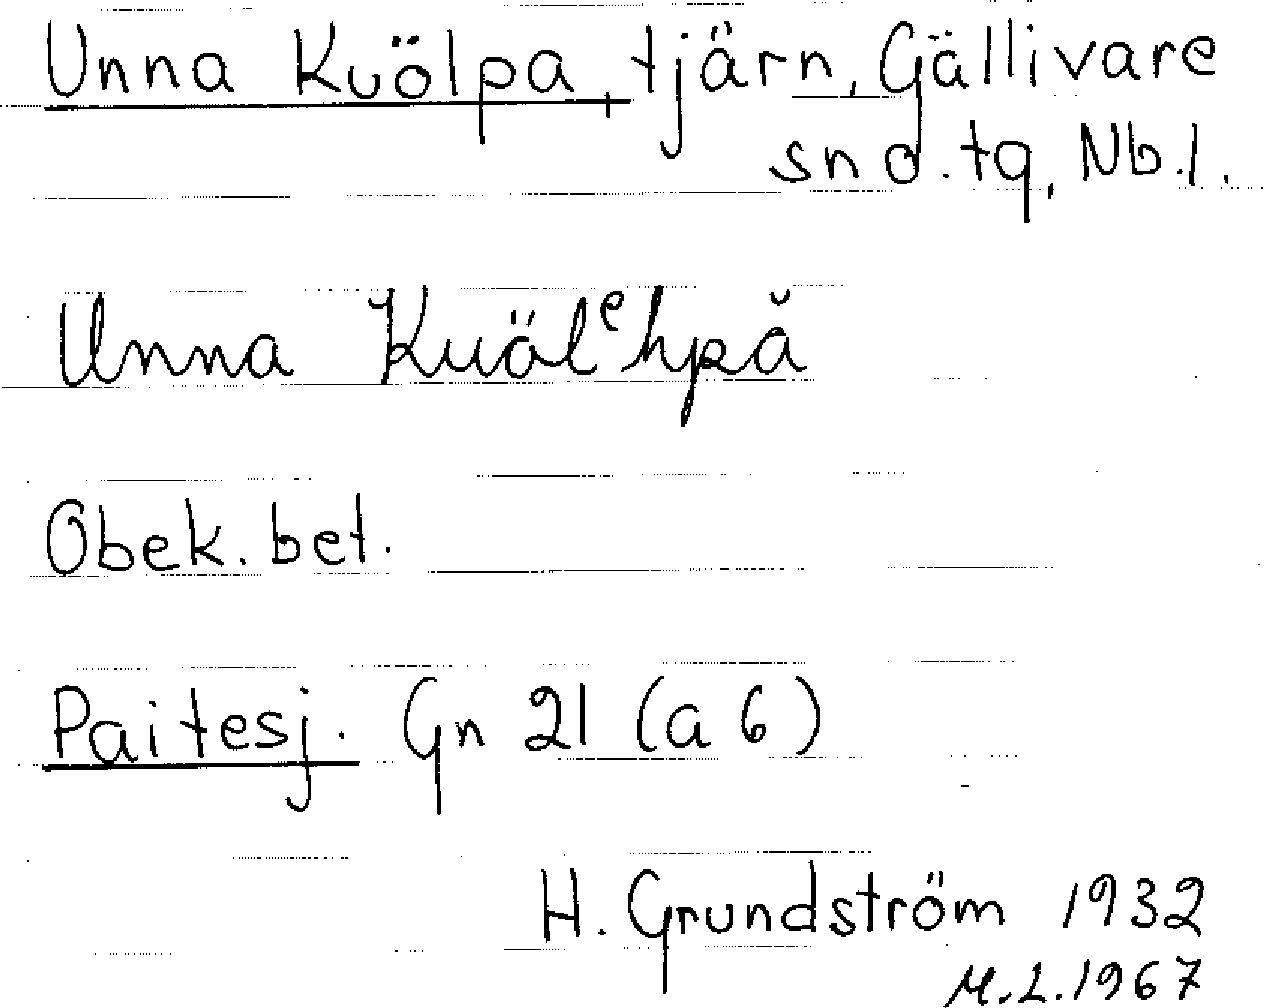 Unna Kuölpa, tjärn, Gällivare
snd.tg, Nb.l.
Unna Kuölᵉhpă
Obek. bet.
Paitesj. Gn 21 (a 6)
H. Grundström 1932
M.L.1967